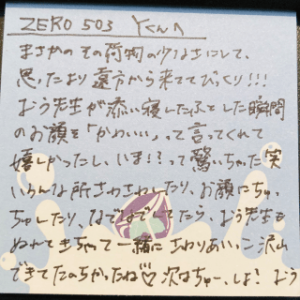 ZERO 503 Yくんへ
まさかのその荷物の少なさにして、
思ったより遠方から来ててびっくり!!!
おう先生が添い寝したふとした瞬間
のお顔を「かわいい」って言ってくれて
嬉しかったし、いま!?って驚いちゃった笑
いろんな所さわさわしたり、お顔にちゅ、
ちゅしたり、なでなでしてたら、おう先生も
ぬれてきちゃって一緒にさわりあいっこ沢山
できてたのしかったね♡ 次はちゅー、しよ? おう